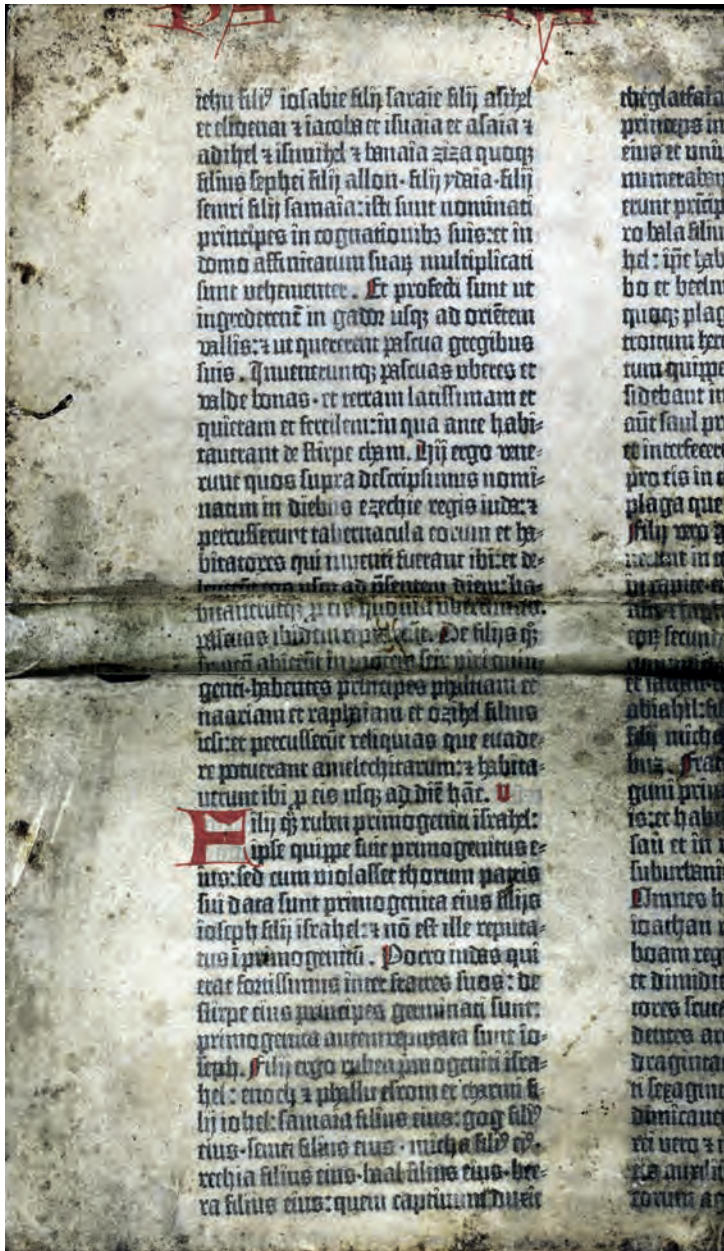 PA    PA
iehu filiꝰ iosabie filij saraie filij asihel
et elioenai ⁊ iacoba et isuaia et asaia ⁊
adihel ⁊ isimihel ⁊ banaia ziza quoqꝫ
filius sephei filij allon·filij ydaia·filij
semri filij samaia:isti sunt nominati
principes in cognationibꝫ suis:et in
domo affinitatum suaꝝ multiplicati
sunt vehementer. Et profecti sunt ut
ingrederent̄ in gador usqꝫ ad oriētem
vallis:⁊ ut quererent pascua gregibus
suis. Inveneruntqꝫ pascuas uberes et
valde bonas·et terram latissimam et
quietam et fertilem:in qua ante habi-
tauerant de stirpe cham. Hij ergo vene-
runt quos supra descripsimus nomi-
natim in diebus ezechie regis iuda:⁊
percusserunt tabernacula eorum et ha-
bitatores qui inventi fuerant ibi:et de-
usqꝫ ad p̄sentem diem:ha-
bitaueruntqꝫ ꝓ eis
pascuas ibidem De filijs qꝫ
abierūt in
genti·habentes principes phaltiam et
naariam et raphaiam et ozihel filius
iesi:et percusserūt reliquias que euade-
re potuerant amalechitarum:⁊ habita-
uerunt ibi ꝓ eis usqꝫ ad diē hāc. V
Filij qꝫ ruben primogeniti israhel:
ipse quippe fuit primogenitus e-
ius:sed cum violasset thorum patris
sui data sunt primogenita eius filijs
ioseph filij israhel:⁊ nō est ille reputa-
tus ī primogenitū. Porro iudas qui
erat fortissimus inter fratres suos: de
stirpe eius principes germinati sunt:
primogenita autem reputata sunt io-
seph. Filij ergo ruben pmogeniti isra-
hel: enoch ⁊ phallu esrom et charmi fi-
lij iohel:samaia filius eius:gog filiꝰ
eius·semei filius eius·micha filiꝰ eiꝰ.
rechia filius eius·baal filius eius·bee-
ra filius eius:quem captiuum duxit
theglatfala
princeps in
eius et uniu
numeraban
erunt prīcip
ro bala filiu
hel: ip̄e hab
bo et beelm
quoqꝫ plag
troitum her
tum quippe
sidebant in
aūt saul pr
et interfecer
pro eis in
plaga que
Filij vero g
in
in capite
et
abiahil:fi
filij micha
buz. Frat
guni prin
is:et habi
san et in v
suburbani
Omnes h
ioathan r
boam reg
et dimidi
tores scut
dentes ar
draginta
ti sexagin
dimicaue
rei vero ⁊
eis auxili
torum a